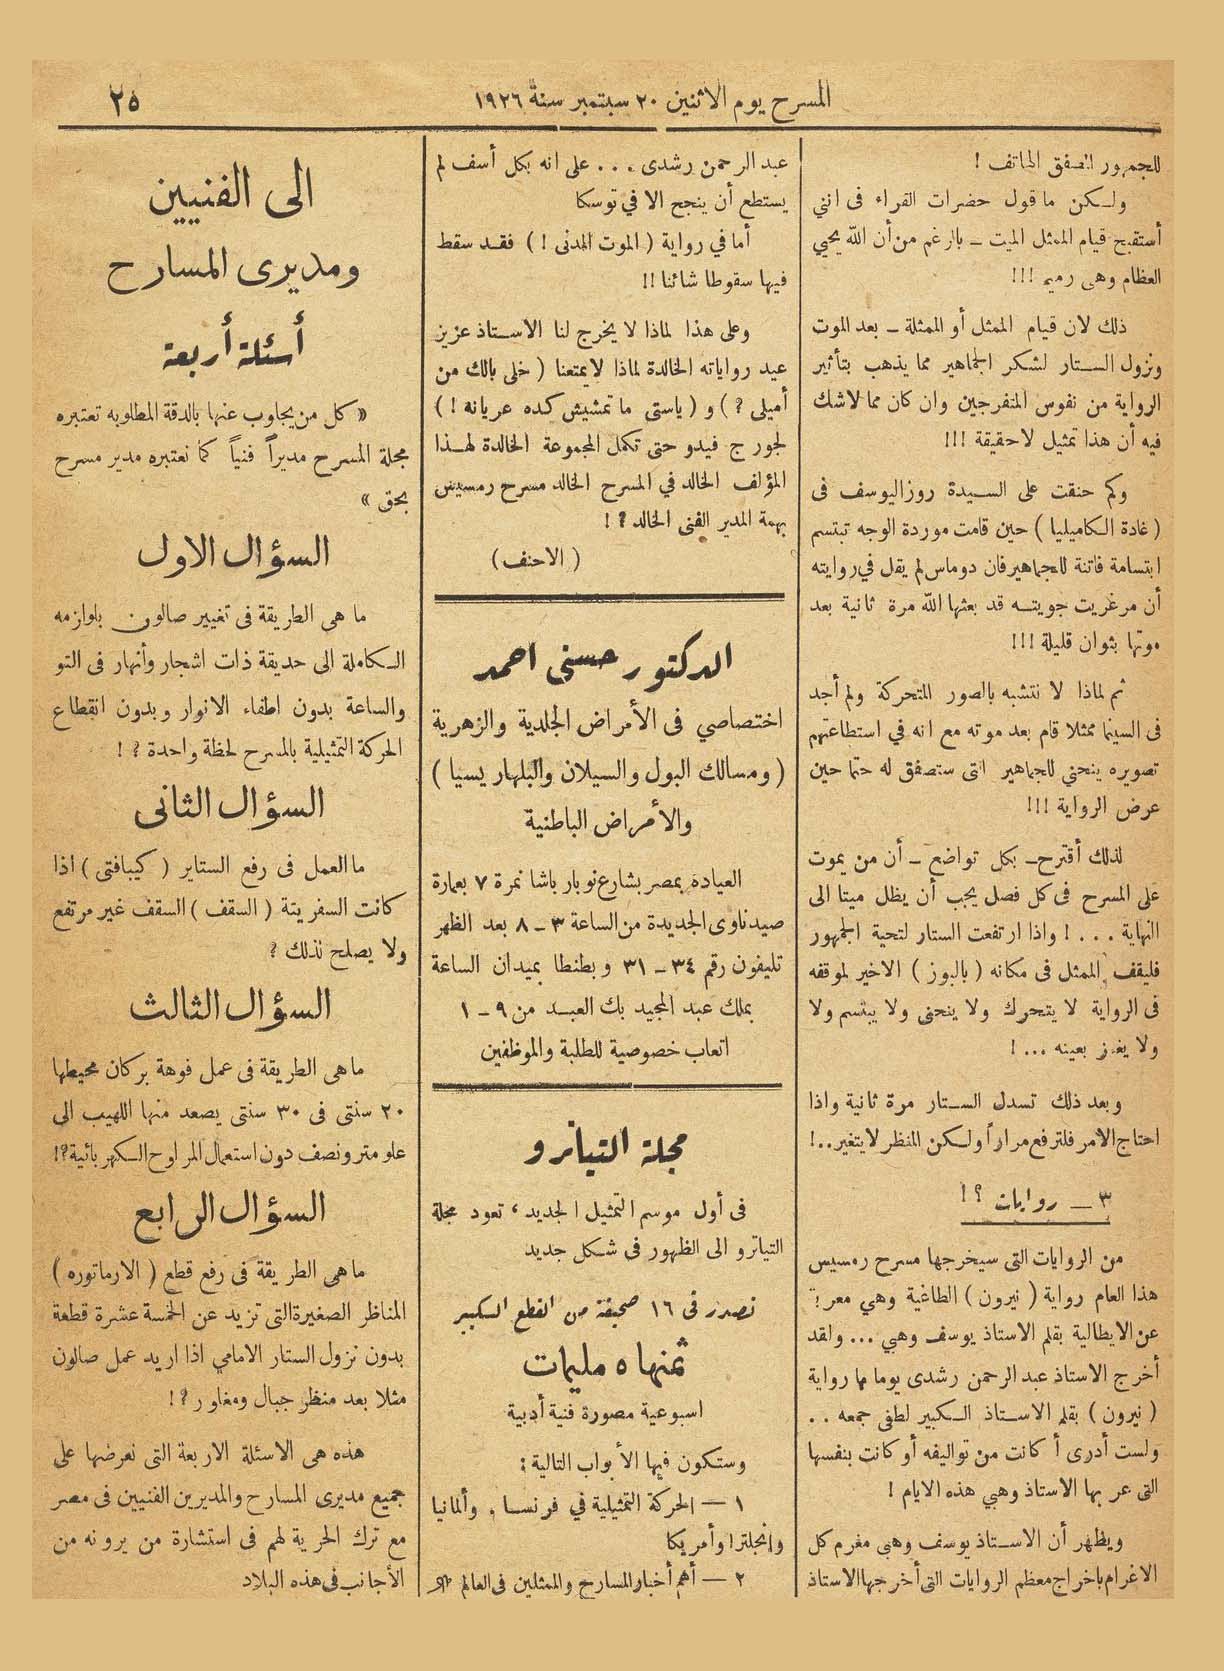 المسرح يوم الاثنين ٢٠ سبتمبر سنة ١٩٢٦
٢٥
للجمهور المصفق الهاتف !
ولكن ما قول حضرات القراء فى اننى
أستقبح قيام الممثل الميت – بالرغم من أن الله يحيي
العظام وهى رميم !!!
ذلك لان قيام الممثل أو الممثلة – بعد الموت
ونزول الستار لشكر الجماهير مما يذهب بتأثير
الرواية من نفوس المتفرجين وان كان مما لاشك
فيه أن هذا تمثيل لا حقيقة !!!
وكم حنقت على السيدة روز اليوسف فى
( غادة الكاميليا ) حين قامت موردة الوجه تبتسم
ابتسامة فاتنة للجماهير فان دوماس لم يقل في روايته
أن مرغريت جويتيه قد بعثها الله مرة ثانية بعد
موتها بثوان قليلة !!!
ثم لماذا لا نتشبه بالصور المتحركة ولم أجد
فى السينما ممثلا قام بعد موته مع انه في استطاعتهم
تصويره ينحني للجماهير التى ستصفق له حتما حين
عرض الرواية !!!
لذلك أقترح – بكل تواضع – أن من يموت
على المسرح فى كل فصل يجب أن يظل ميتا الى
النهاية . . . ! واذا ارتفعت الستار لتحية الجمهور
فليقف الممثل فى مكانه ( بالبوز ) الاخير لموقفه
فى الرواية لا يتحرك ولا ينحنى ولا يبتسم ولا
ولا يغمز بعينه ... !
وبعد ذلك تسدل الستار مرة ثانية واذا
احتاج الامر فلترفع مراراً ولكن المنظر لا يتغير ..!
٣ — روايات ؟!
من الروايات التى سيخرجها مسرح رمسيس
هذا العام رواية ( نيرون ) الطاغية وهي معربة
عن الايطالية بقلم الاستاذ يوسف وهبي ... ولقد
أخرج الاستاذ عبد الرحمن رشدى يوما ما رواية
( نيرون ) بقلم الاستاذ الكبير لطفى جمعه . .
ولست أدرى أ كانت من تواليفه أو كانت بنفسها
التى عر بها الاستاذ وهبي هذه الايام !
ويظهر أن الاستاذ يوسف وهبى مغرم كل
الاغرام باخراج معظم الروايات التى أخرجها الاستاذ
عبد الرحمن رشدى . . . على انه بكل أسف لم
يستطع أن ينجح الا في توسكا
أما في رواية ( الموت المدنى ! ) فقد سقط
فيها سقوطا شائنا !!
وعلى هذا لماذا لا يخرج لنا الاستاذ عزيز
عيد رواياته الخالدة لماذا لا يمتعنا ( خلى بالك من
أميلى ؟ ) و ( ياستى ما تمشيش كده عريانه ! )
لجورج فيدو حتى تكمل المجموعة الخالدة لهذا
المؤلف الخالد في المسرح الخالد مسرح رمسيس
بهمة المدير الفنى الخالد ؟ !
( الاحنف )
الدكتور حسنى احمد
اختصاصي فى الأمراض الجلدية والزهرية
( ومسالك البول والسيلان والبلهاريسيا )
والأمراض الباطنية
العياده بمصر بشارع نوبار باشا نمرة ٧ بعمارة
صيدناوى الجديدة من الساعة ٣ – ٨ بعد الظهر
تليفون رقم ٣٤ – ٣١ وبطنطا بميدان الساعة
بملك عبد المجيد بك العبد من ٩ – ١
اتعاب خصوصية للطلبة والموظفين
مجلة التياترو
فى أول موسم التمثيل الجديد ، تعود مجلة
التياترو الى الظهور فى شكل جديد
تصدر فى ١٦ صحيفة من القطع الكبير
ثمنها ٥ مليمات
اسبوعية مصورة فنية أدبية
وستكون فيها الأبواب التالية :
١ — الحركة التمثيلية في فرنسا , وألمانيا
وإنجلترا وأمريكا
٢ — أهم أخبار المسارح والممثلين فى العالم
الى الفنيين
ومديرى المسارح
أسئلة أربعة
« كل من يجاوب عنها بالدقة المطلوبه تعتبره
مجلة المسرح مديراً فنياً كما نعتبره مدير مسرح
بحق »
السؤال الاول
ما هى الطريقة فى تغيير صالون بلوازمه
الكاملة الى حديقة ذات اشجار وأنهار فى التو
والساعة بدون اطفاء الانوار وبدون انقطاع
الحركة التمثيلية بالمسرح لحظة واحدة ؟ !
السؤال الثانى
ما العمل فى رفع الستاير ( كيبافتى ) اذا
كانت السفريتة ( السقف ) السقف غير مرتفع
ولا يصلح لذلك ؟
السؤال الثالث
ما هى الطريقة فى عمل فوهة بركان محيطها
٢٠ سنتى فى ٣٠ سنتى يصعد منها اللهيب الى
علو متر ونصف دون استعمال المراوح الكهربائية ؟!
السؤال الرابع
ما هى الطريقة فى رفع قطع ( الارماتوره )
المناظر الصغيرة التى تزيد عن الخمسة عشرة قطعة
بدون نزول الستار الامامي اذا اريد عمل صالون
مثلا بعد منظر جبال ومغاور ؟!
هذه هى الاسئلة الاربعة التى نعرضها على
جميع مديرى المسارح والمديرين الفنيين فى مصر
مع ترك الحرية لهم فى استشارة من يرونه من
الأجانب فى هذه البلاد